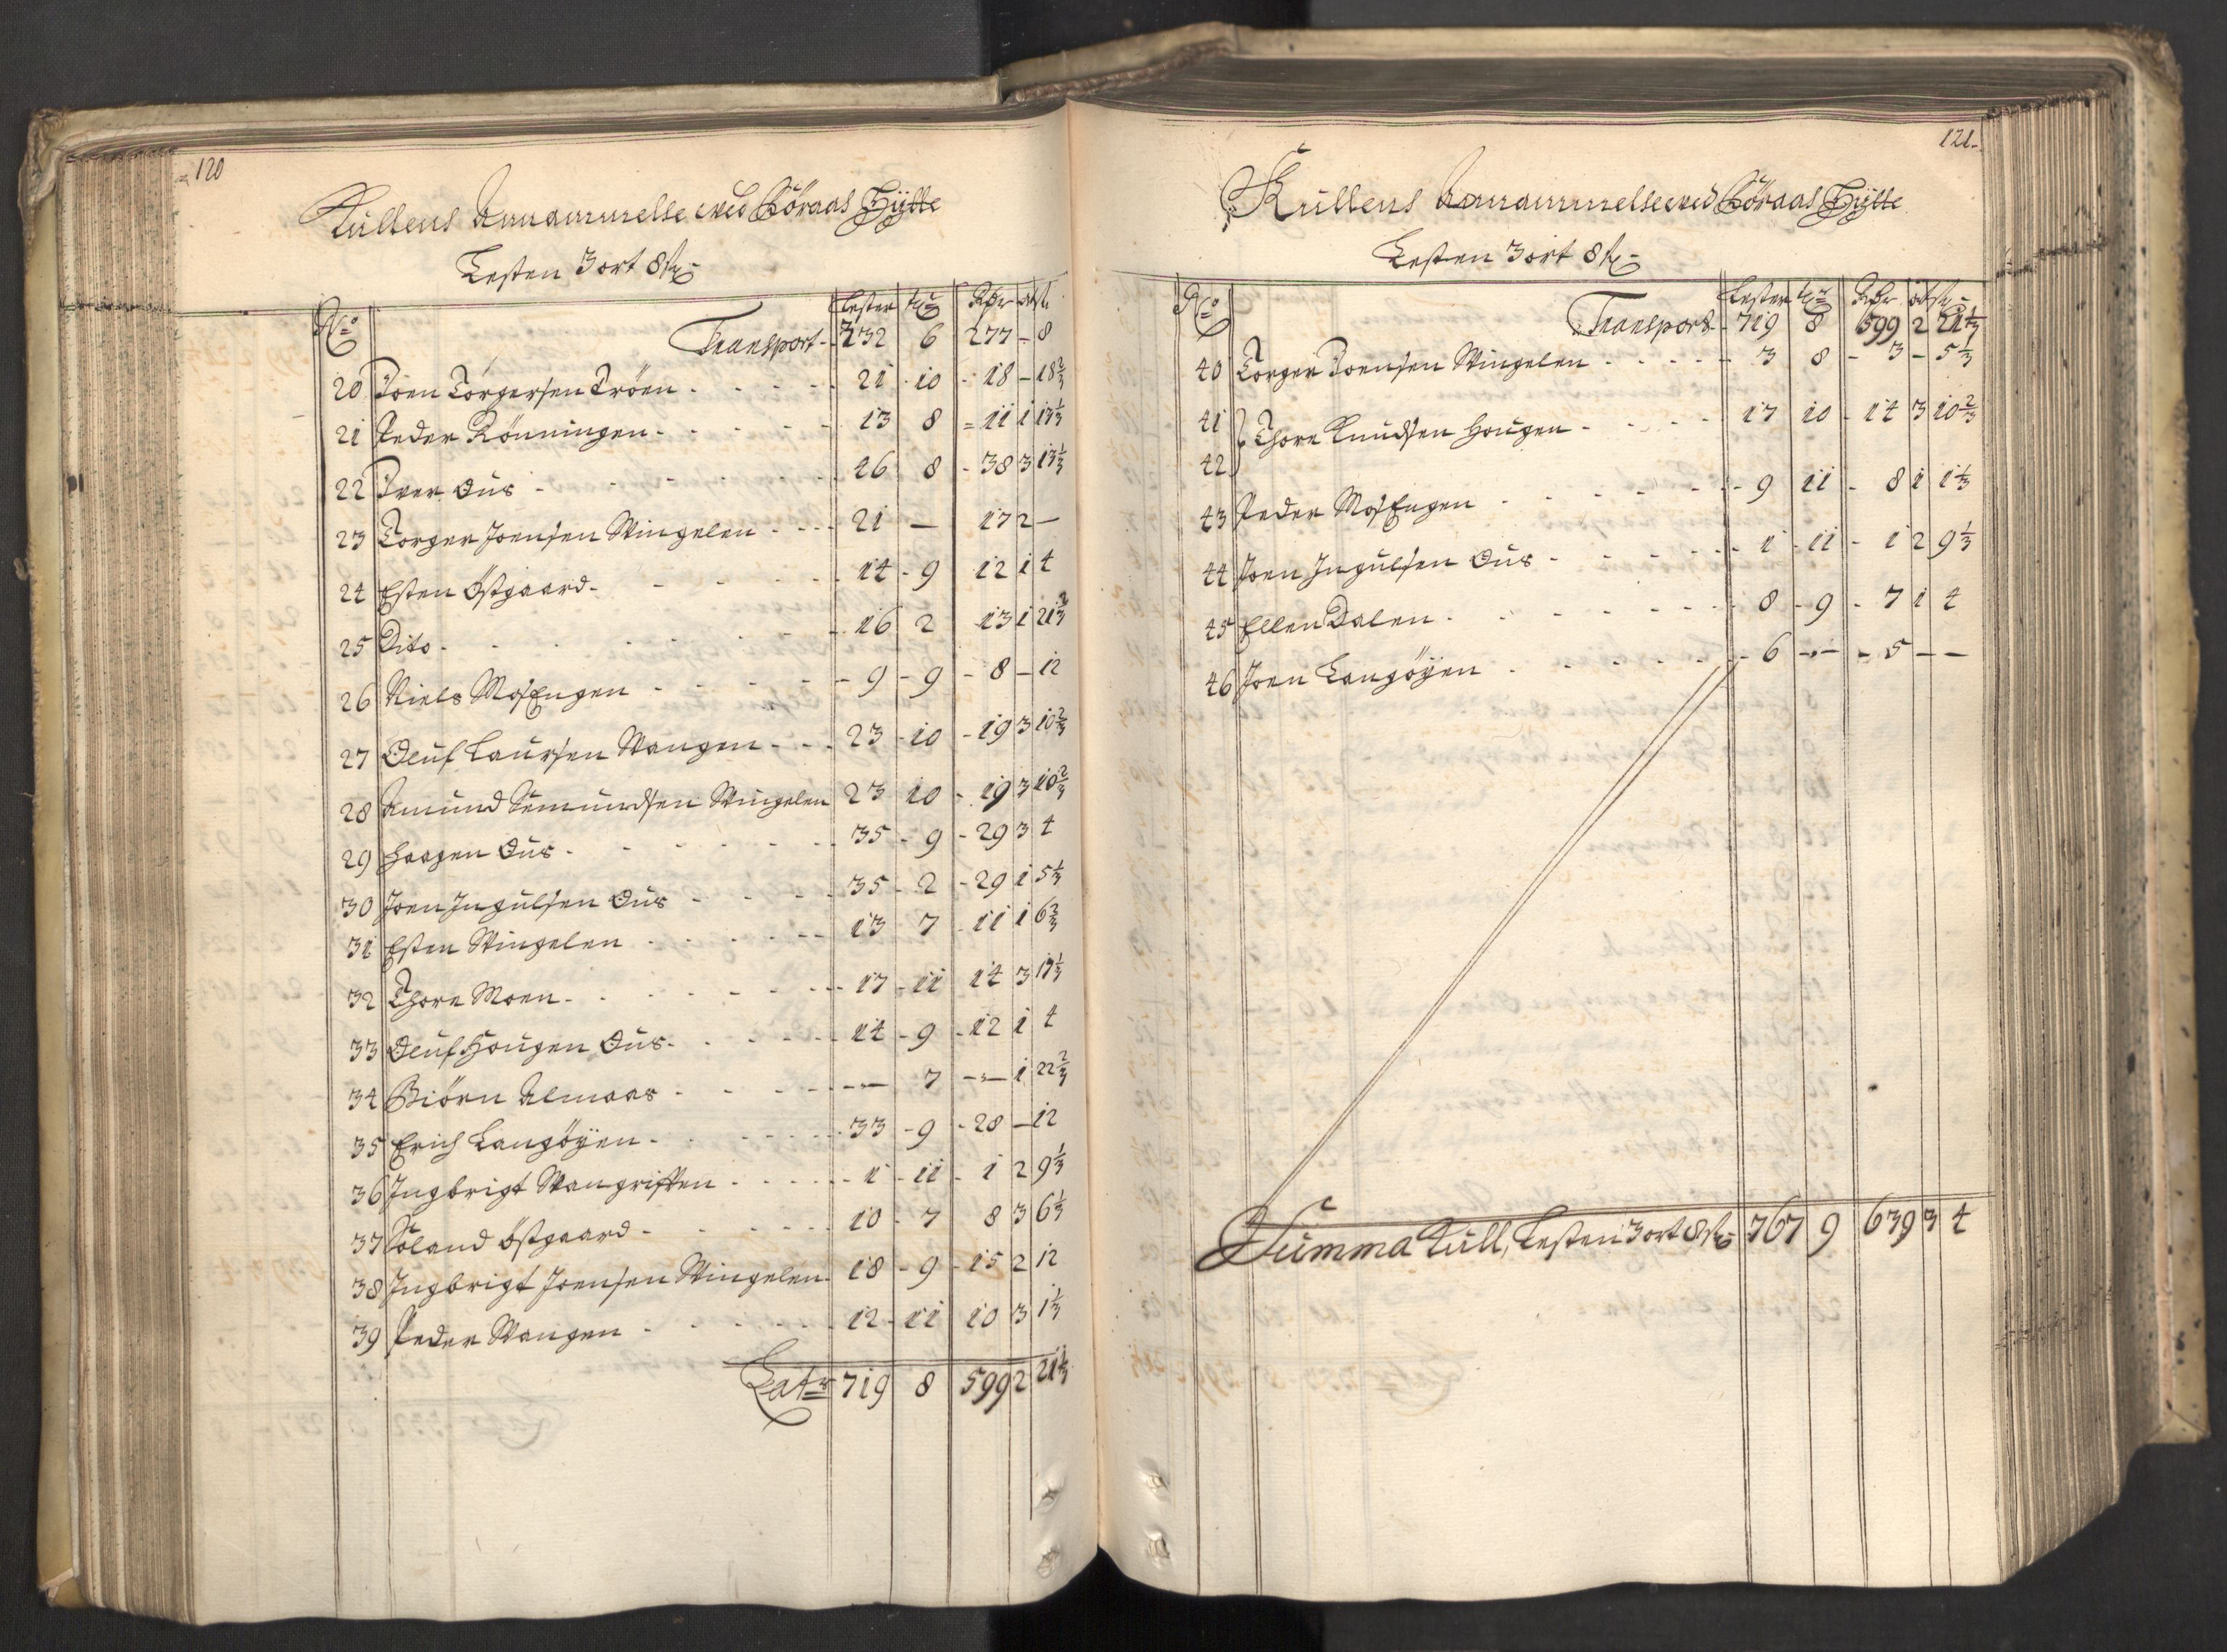 120
Kullens Annammelse ved Röraas Hÿtte
Lesten 3 ort 8 sk
No Lester tr Rdr ort sk
Transport - 332 6 277 - 8
20 Joen Torgersen Tröen - 21 10 - 18 - 18 2/3
21 Peder Rönningen - 13 8 = 11 1 13 1/3
22 Iver Ous - 46 8 - 38 3 13 1/3
23 Torger Joensen Wingelen - 21 — 17 2 —
24 Esten Östgaard - 14 - 9 12 1 4
25 Dito - 16 2 13 1 21 1/3
26 Niels MosEngen - 9 - 9 - 8 - 12
27 Oluf Laursen Wangen - 23 - 10 - 19 3 10 2/3
28 Amund Semundsen Wingelen 23 10 - 19 3 10 2/3
29 Haagen Ous - 35 - 9 - 29 3 4
30 Joen Ingulsen Ous - 35 - 2 - 29 1 5 1/3
31 Esten Wingelen - 13 7 11 1 6 2/3
32 Thore Moen - 17 - 11 14 3 17 1/3
33 Oluf Hougen Ous - 14 - 9 - 12 1 4
34 Biörn Almaas - — 7 - — 1 22 2/3
35 Erich Langöÿen - 33 - 9 - 28 — 12
36 Ingbrigt Wangristen - 1 - 11 - 1 2 9 1/3
37 Roland Östgaard - 10 - 7 8 3 6 1/3
38 Ingbrigt Joensen Wingelen - 18 - 9 - 15 2 12
39 Peder Wangen - 12 - 11 10 3 1 1/3
Latr 719 8 599 2 21 1/3
121-
Kullens Annammelse ved Röraas Hÿtte
Lesten 3 ort 8 sk -
No Lester tr Rdr ort sk
Transport - 719 8 599 2 21 1/3
40 Torger Joensen Wingelen - 3 8 - 3 - 5 1/3
41 } Thore Knudsen Hougen - 17 10 - 14 3 10 2/3
42
43 Peder MosEngen - 9 11 - 8 1 1 1/3
44 Joen Ingulsen Ous - 1 - 11 - 1 2 9 1/3
45 Ellen Dalen - 8 - 9 - 7 1 4
46 Joen Langöÿen - 6 — - 5 — —
Summa Kull, Lesten 3 ort 8 sk - 767 9 639 3 4